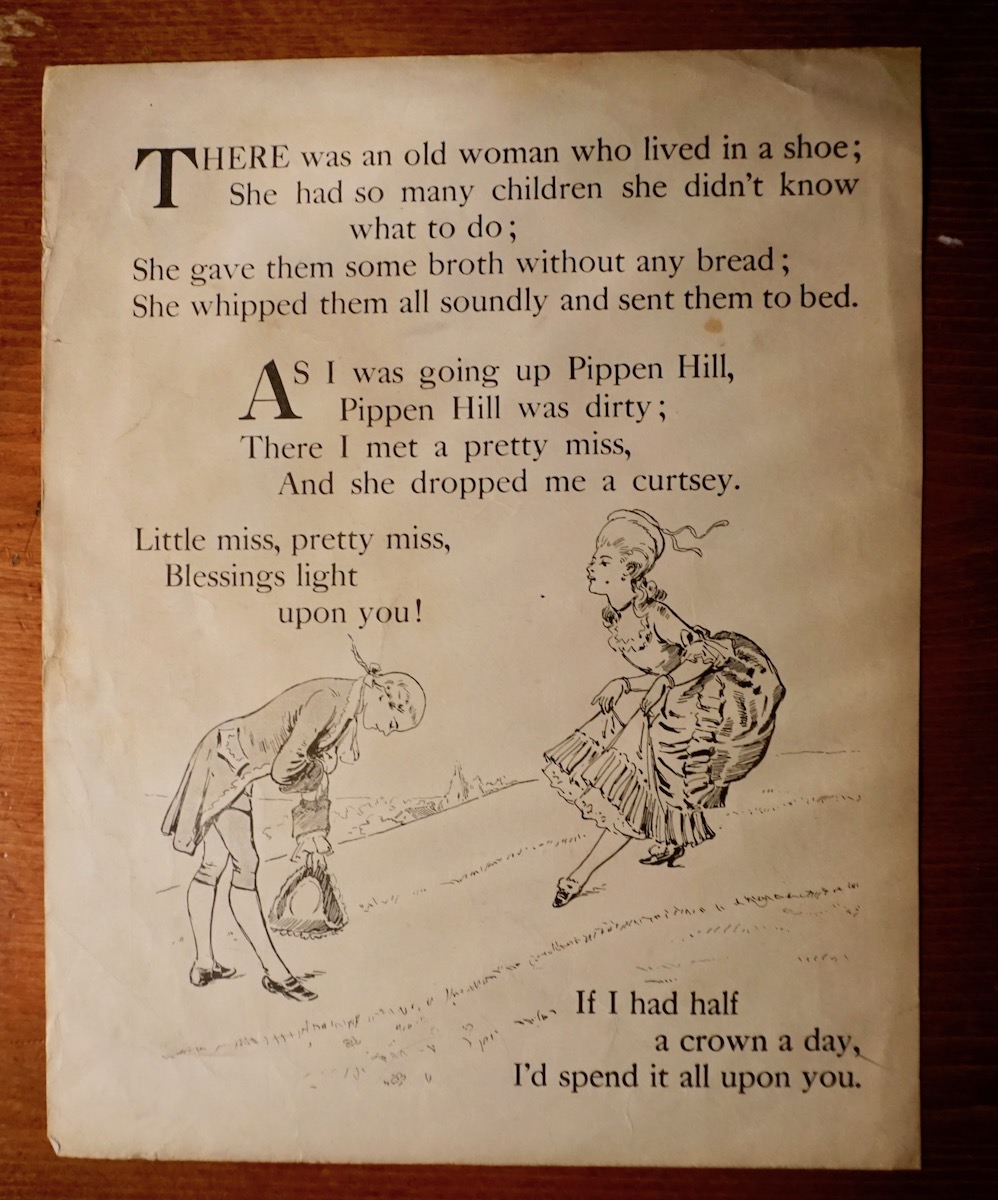 THERE was an old woman who lived in a shoe;
She had so many children she didn't know
what to do;
She gave them some broth without any bread;
She whipped them all soundly and sent them to bed.
AS I was going up Pippen Hill,
Pippen Hill was dirty;
There I met a pretty miss,
And she dropped me a curtsey.
Little miss, pretty miss,
Blessings light
upon you!
If I had half
a crown a day,
I'd spend it all upon you.